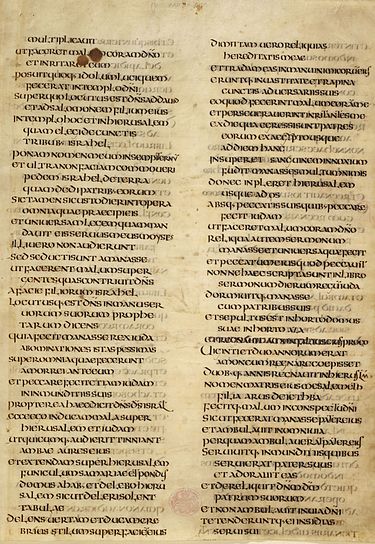 multiplicauit
ut faceret malum coram dno
et inritaret eum
posuitq· idolum luci quem
fecerat in templo dni
super quo locutus est dns ad dauid
et ad salomonem filium eius
in templo hoc et in hierusalem
quam elegi de cunctis
tribub· israhel
ponam nomen meum in sempiternum
et ultra non faciam commoueri
pedem israhel de terra
quam dedi patrib· eorum
sic tamen si custodierint opera
omnia quae praecepi eis
et uniuersam legem quam man
dauit eis seruus meus moyses
illi uero non audierunt
sed seducti sunt a manasse
ut facerent malum super
gentes quas contriuit dns
a facie filiorum israhel
locutusq· est dns in manu ser
uorum suorum prophe
tarum dicens
quia fecit manasse rex iuda
abominationes istas pessimas
super omnia quae fecerunt
amorrei ante eum
et peccare fecit etiam iudam
in inmunditiis suis
propterea haec dicit dns ds israhel
ecce ego inducam mala super
hierusalem et iudam
ut quicumq· audierit tinniant
ambae aures eius
et extendam super hierusalem
funiculum samariae et pondus
domus ahab et delebo hieru
salem sicut deleri solent
tabulae
delens uertam et ducam cre
brius stilum super faciem eius
dimittam uero reliquias
hereditatis meae
et tradam eas in manu inimicorum eius
eruntq· in uastitate et rapina
cunctis aduersariis suis
eo quod fecerint malum coram me
et perseuerauerint inritantes me
ex die qua egressi sunt patres
eorum ex aegypto usq· ad
diem hanc
insuper et sanguinem innoxium
fudit manasses multum nimis
donec impleret hierusalem
usque ad os
absq· peccatis suis quib· peccare
fecit iudam
ut faceret malum coram dno
reliqua autem sermonum
manasse et uniuersa quae fecit
et peccatum eius quod peccauit
nonne haec scripta sunt in libro
sermonum dierum regum iuda
dormiuitq· manasse
cum patribus suis
et sepultus est in horto domus
suae in horto aza
et regnauit amon filius eius pro eo
uiginti et duo annorum erat
amon cum regnare coepisset
duob· q· annis regnauit in hierusalem
nomen matris eius mesallemeth
filia arus de ietheba
fecitq· malum in conspectu dni
sicut fecerat manasse pater eius
et ambulauit in omni uia
per quam ambulauerat pater eius
seruiuitq· inmunditiis quibus
seruierat pater suus
et adorauit eas
et dereliquit dnm dm
patrum suorum
et non ambulauit in uia dni
tetenderuntq· ei insidias
serui sui